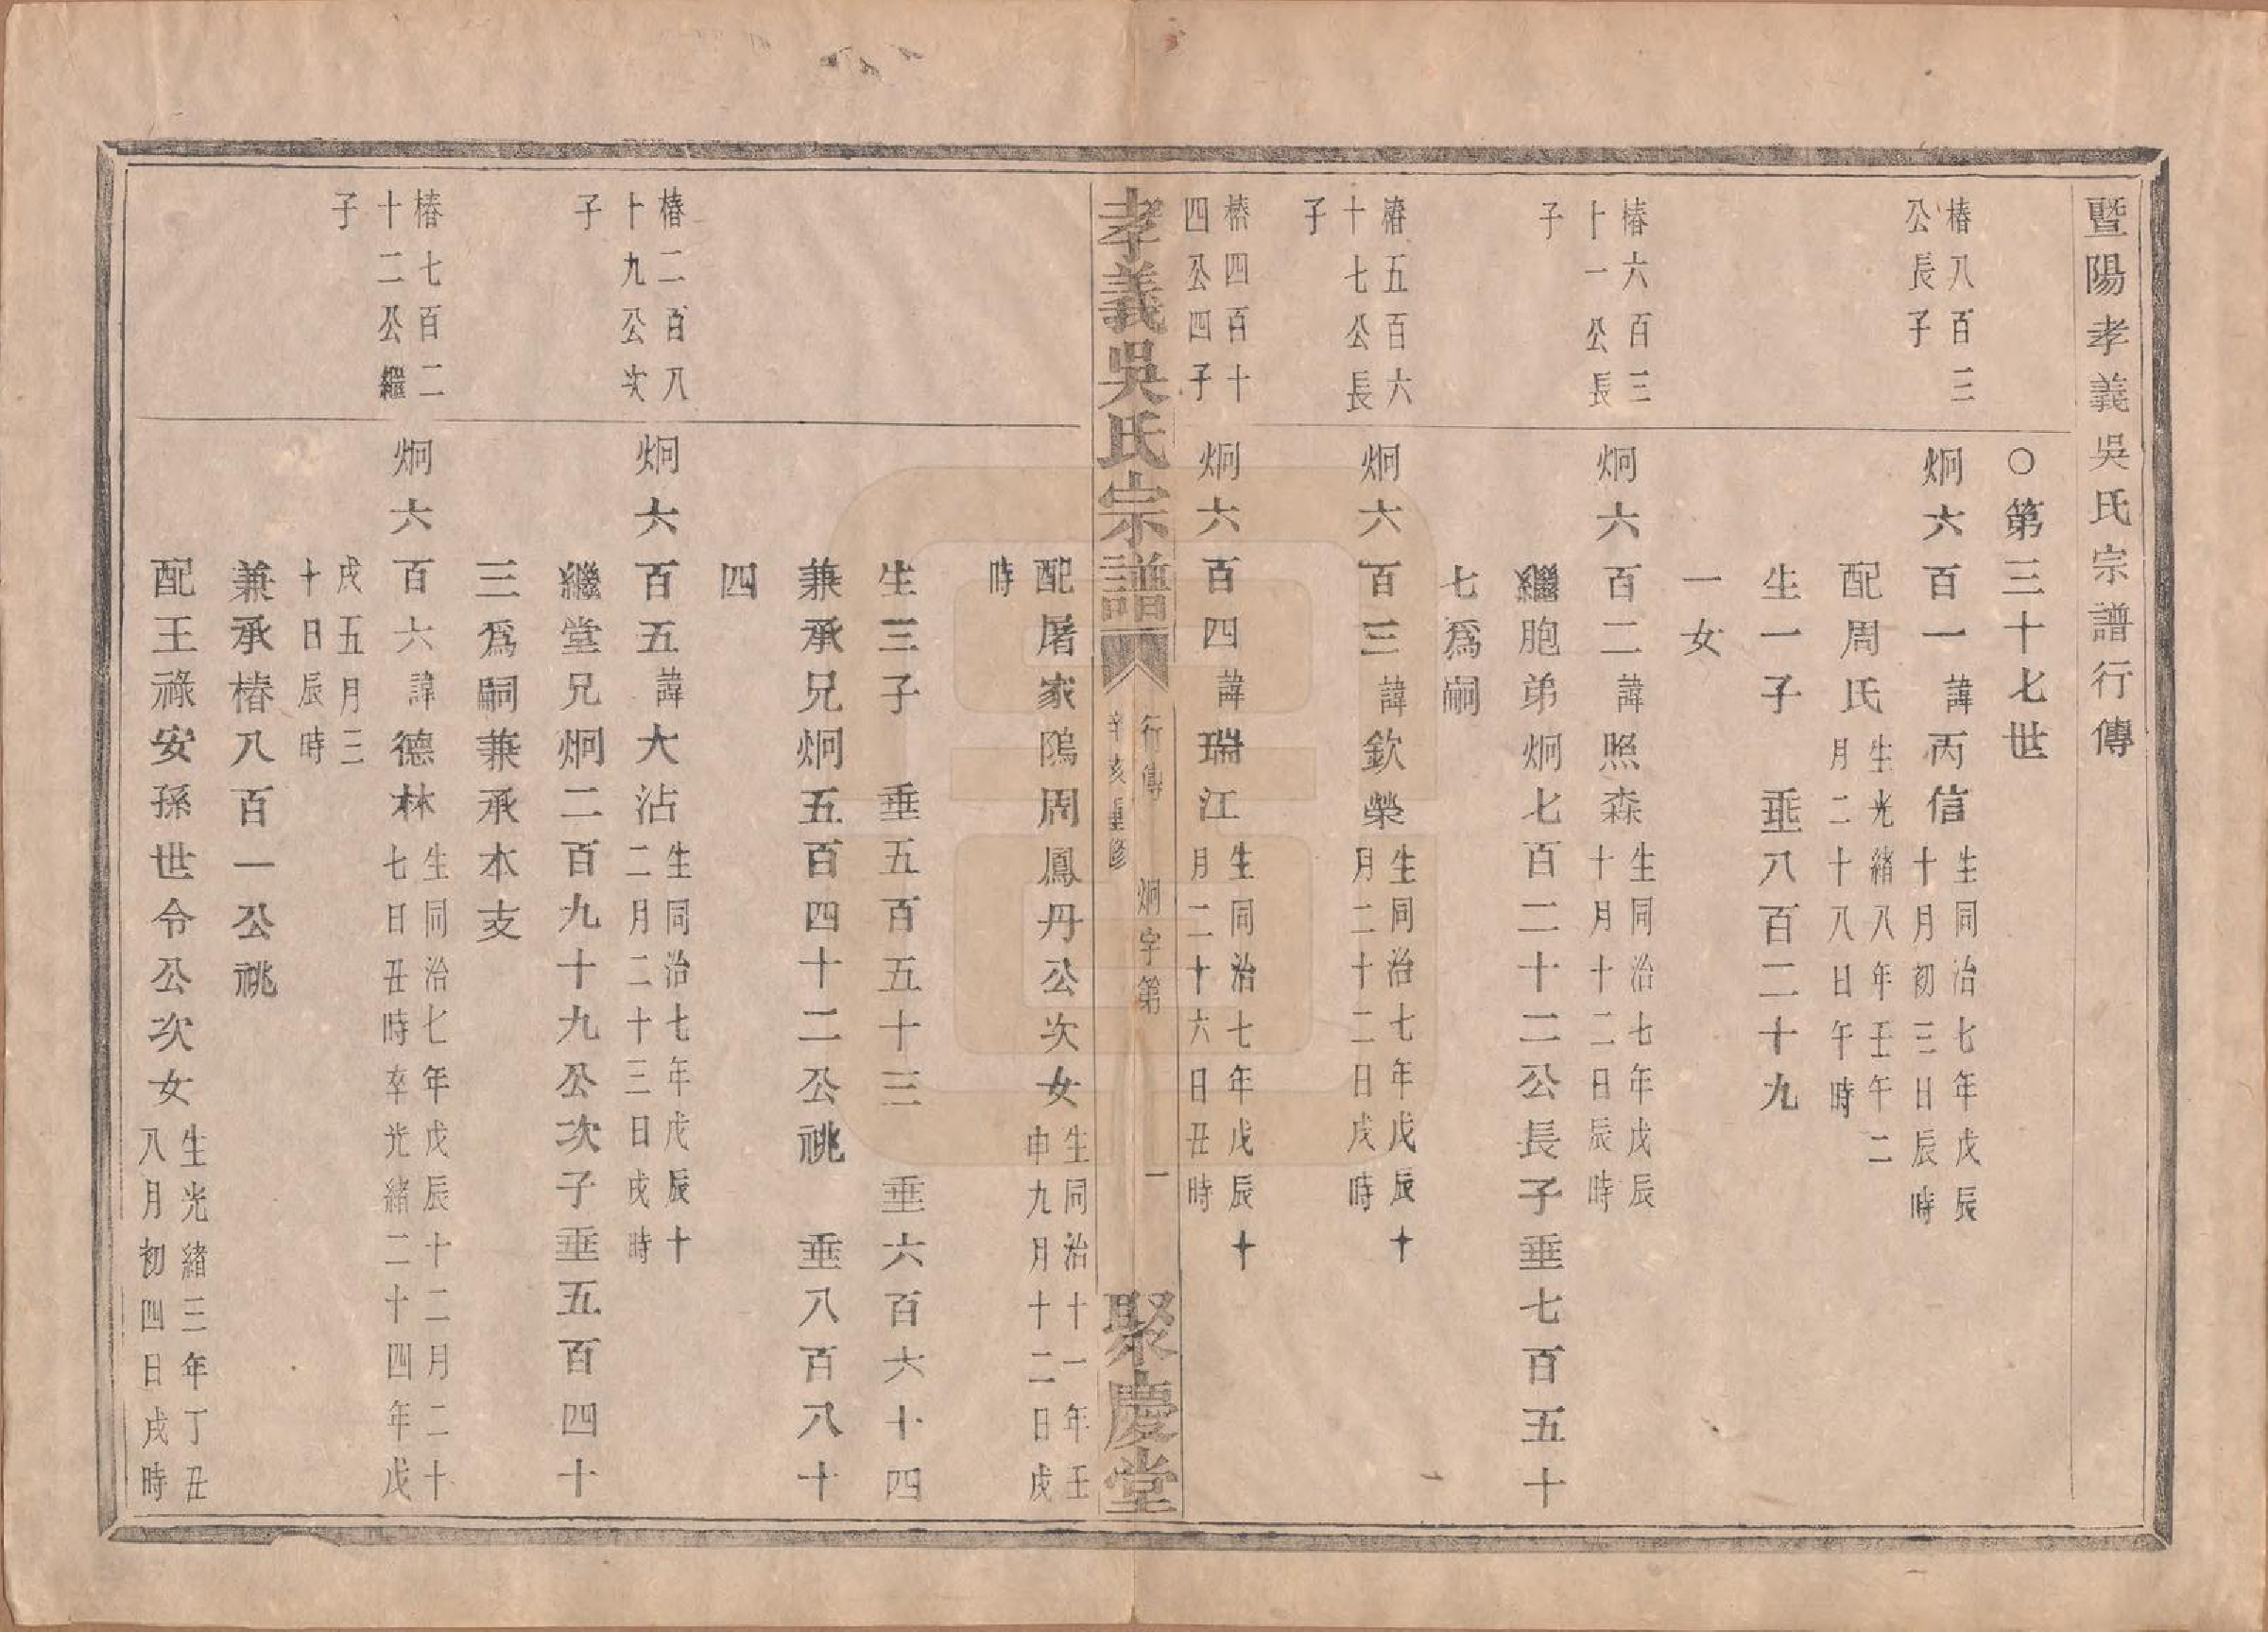 暨陽孝義吳氏宗譜行傳
○第三十七世
椿八百三
公長子
炯六百一諱丙信生同治七年戊辰
十月初三日辰時
配周氏生光緒八年壬午二
月二十八日午時
生一子　垂八百二十九
一女
椿六百三
十一公長
子
炯六百二諱照森生同治七年戊辰
十月十二日辰時
繼胞弟炯七百二十二公長子垂七百五十
七爲嗣
椿五百六
十七公長
子
炯六百三諱欽榮生同治七年戊辰十
月二十二日戌時
椿四百十
四公四子
炯六百四諱瑞江生同治七年戊辰十
月二十六日丑時
孝義吳氏宗譜
行傳　炯字第　一
辛亥重修
聚慶堂
配屠家隖周鳳丹公次女生同治十一年壬
申九月十二日戌
時
生三子　垂五百五十三　垂六百六十四
兼承兄炯五百四十二公祧　垂八百八十
四
椿二百八
十九公次
子
炯六百五諱大沾生同治七年戊辰十
二月二十三日戌時
繼堂兄炯二百九十九公次子垂五百四十
三爲嗣兼承本支
椿七百二
十二公繼
子
炯六百六諱德林生同治七年戊辰十二月二十
七日丑時卒光緒二十四年戊
戌五月三
十日辰時
兼承椿八百一公祧
配王祿安孫世令公次女生光緒三年丁丑
八月初四日戌時